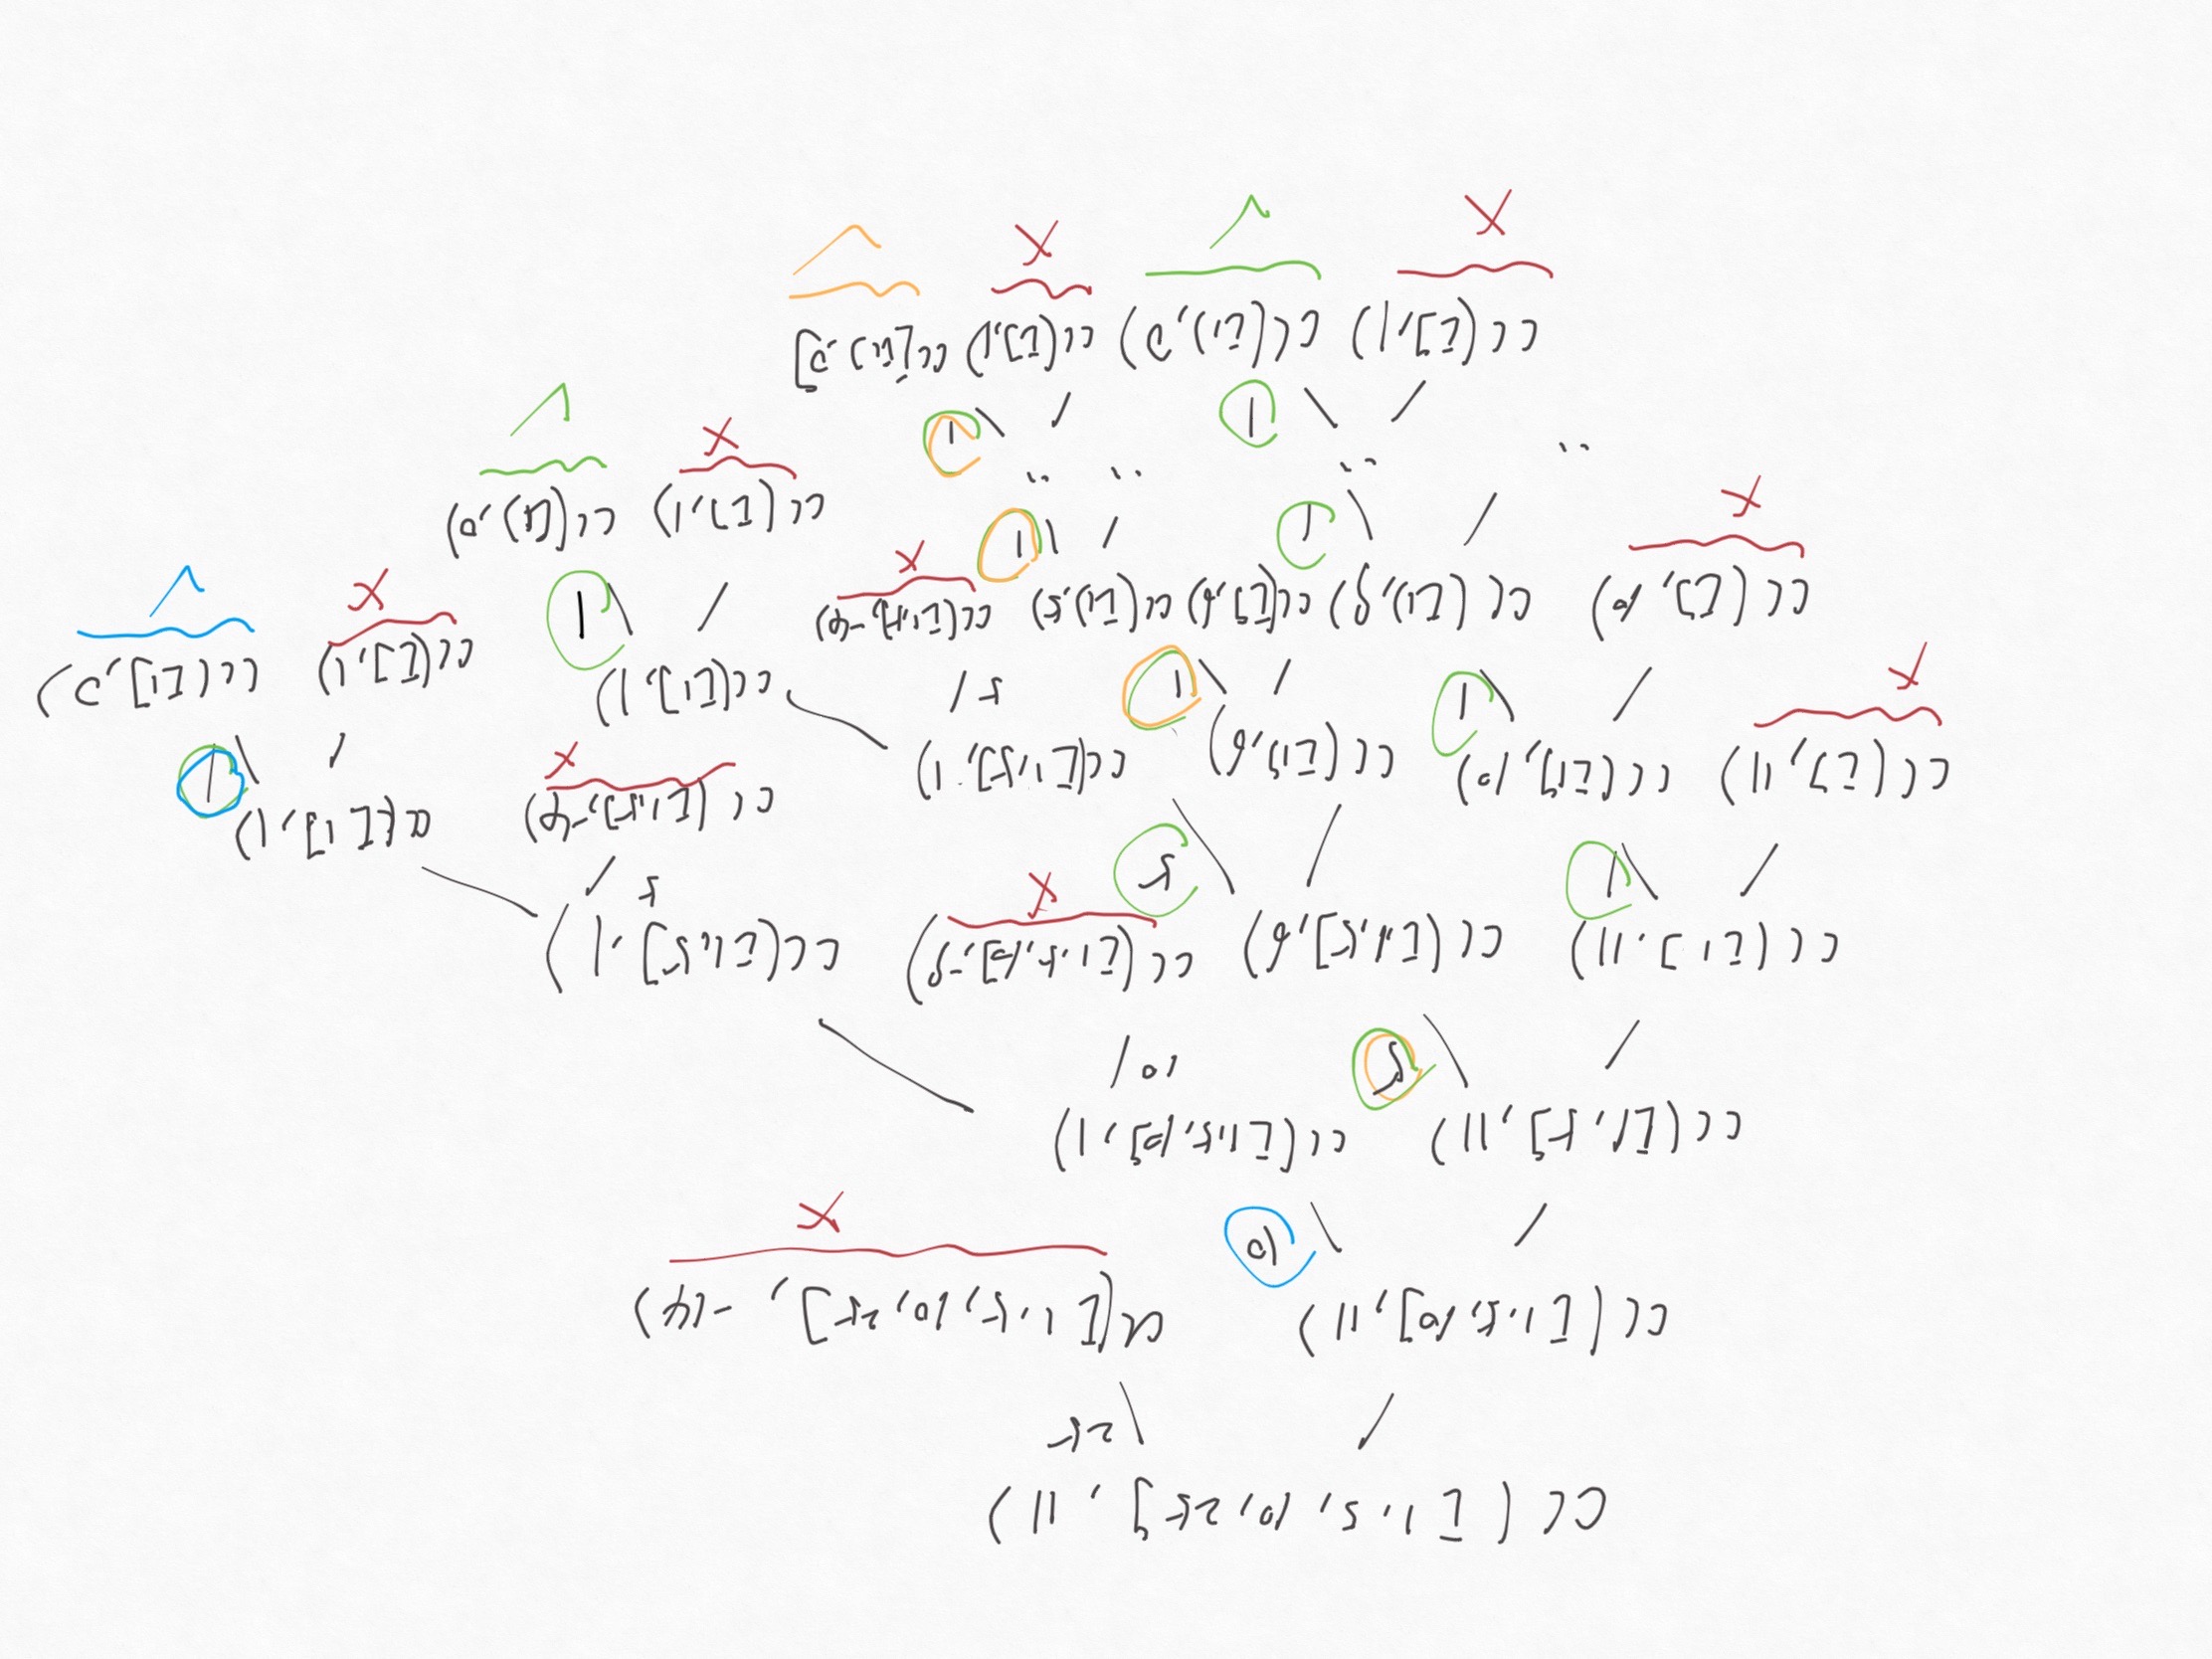 CC([1,5,10,25],11)
25
CC([1,5,10],11) CC([1,5,10,25],-14)
10
CC([1,5],11) CC([1,5,10],1)
5 10
CC([1],11) CC([1,5],6) CC([1,5,10],-9) CC([1,5],1)
1 5 5
CC([],11) CC([1],10) CC([1],6) CC([1,5],1) CC([1,5],-4) CC([1],1)
1 1 5 1
CC([],10) CC([1],9) CC([],6) CC([1],5) CC([1,5],-4) CC([1],1) CC([],1) CC([1],0)
1 1 1
.. .. .. .. CC([],1) CC([1],0)
1 1
CC([],1) CC([1],0) CC([],1) CC[[1],0]